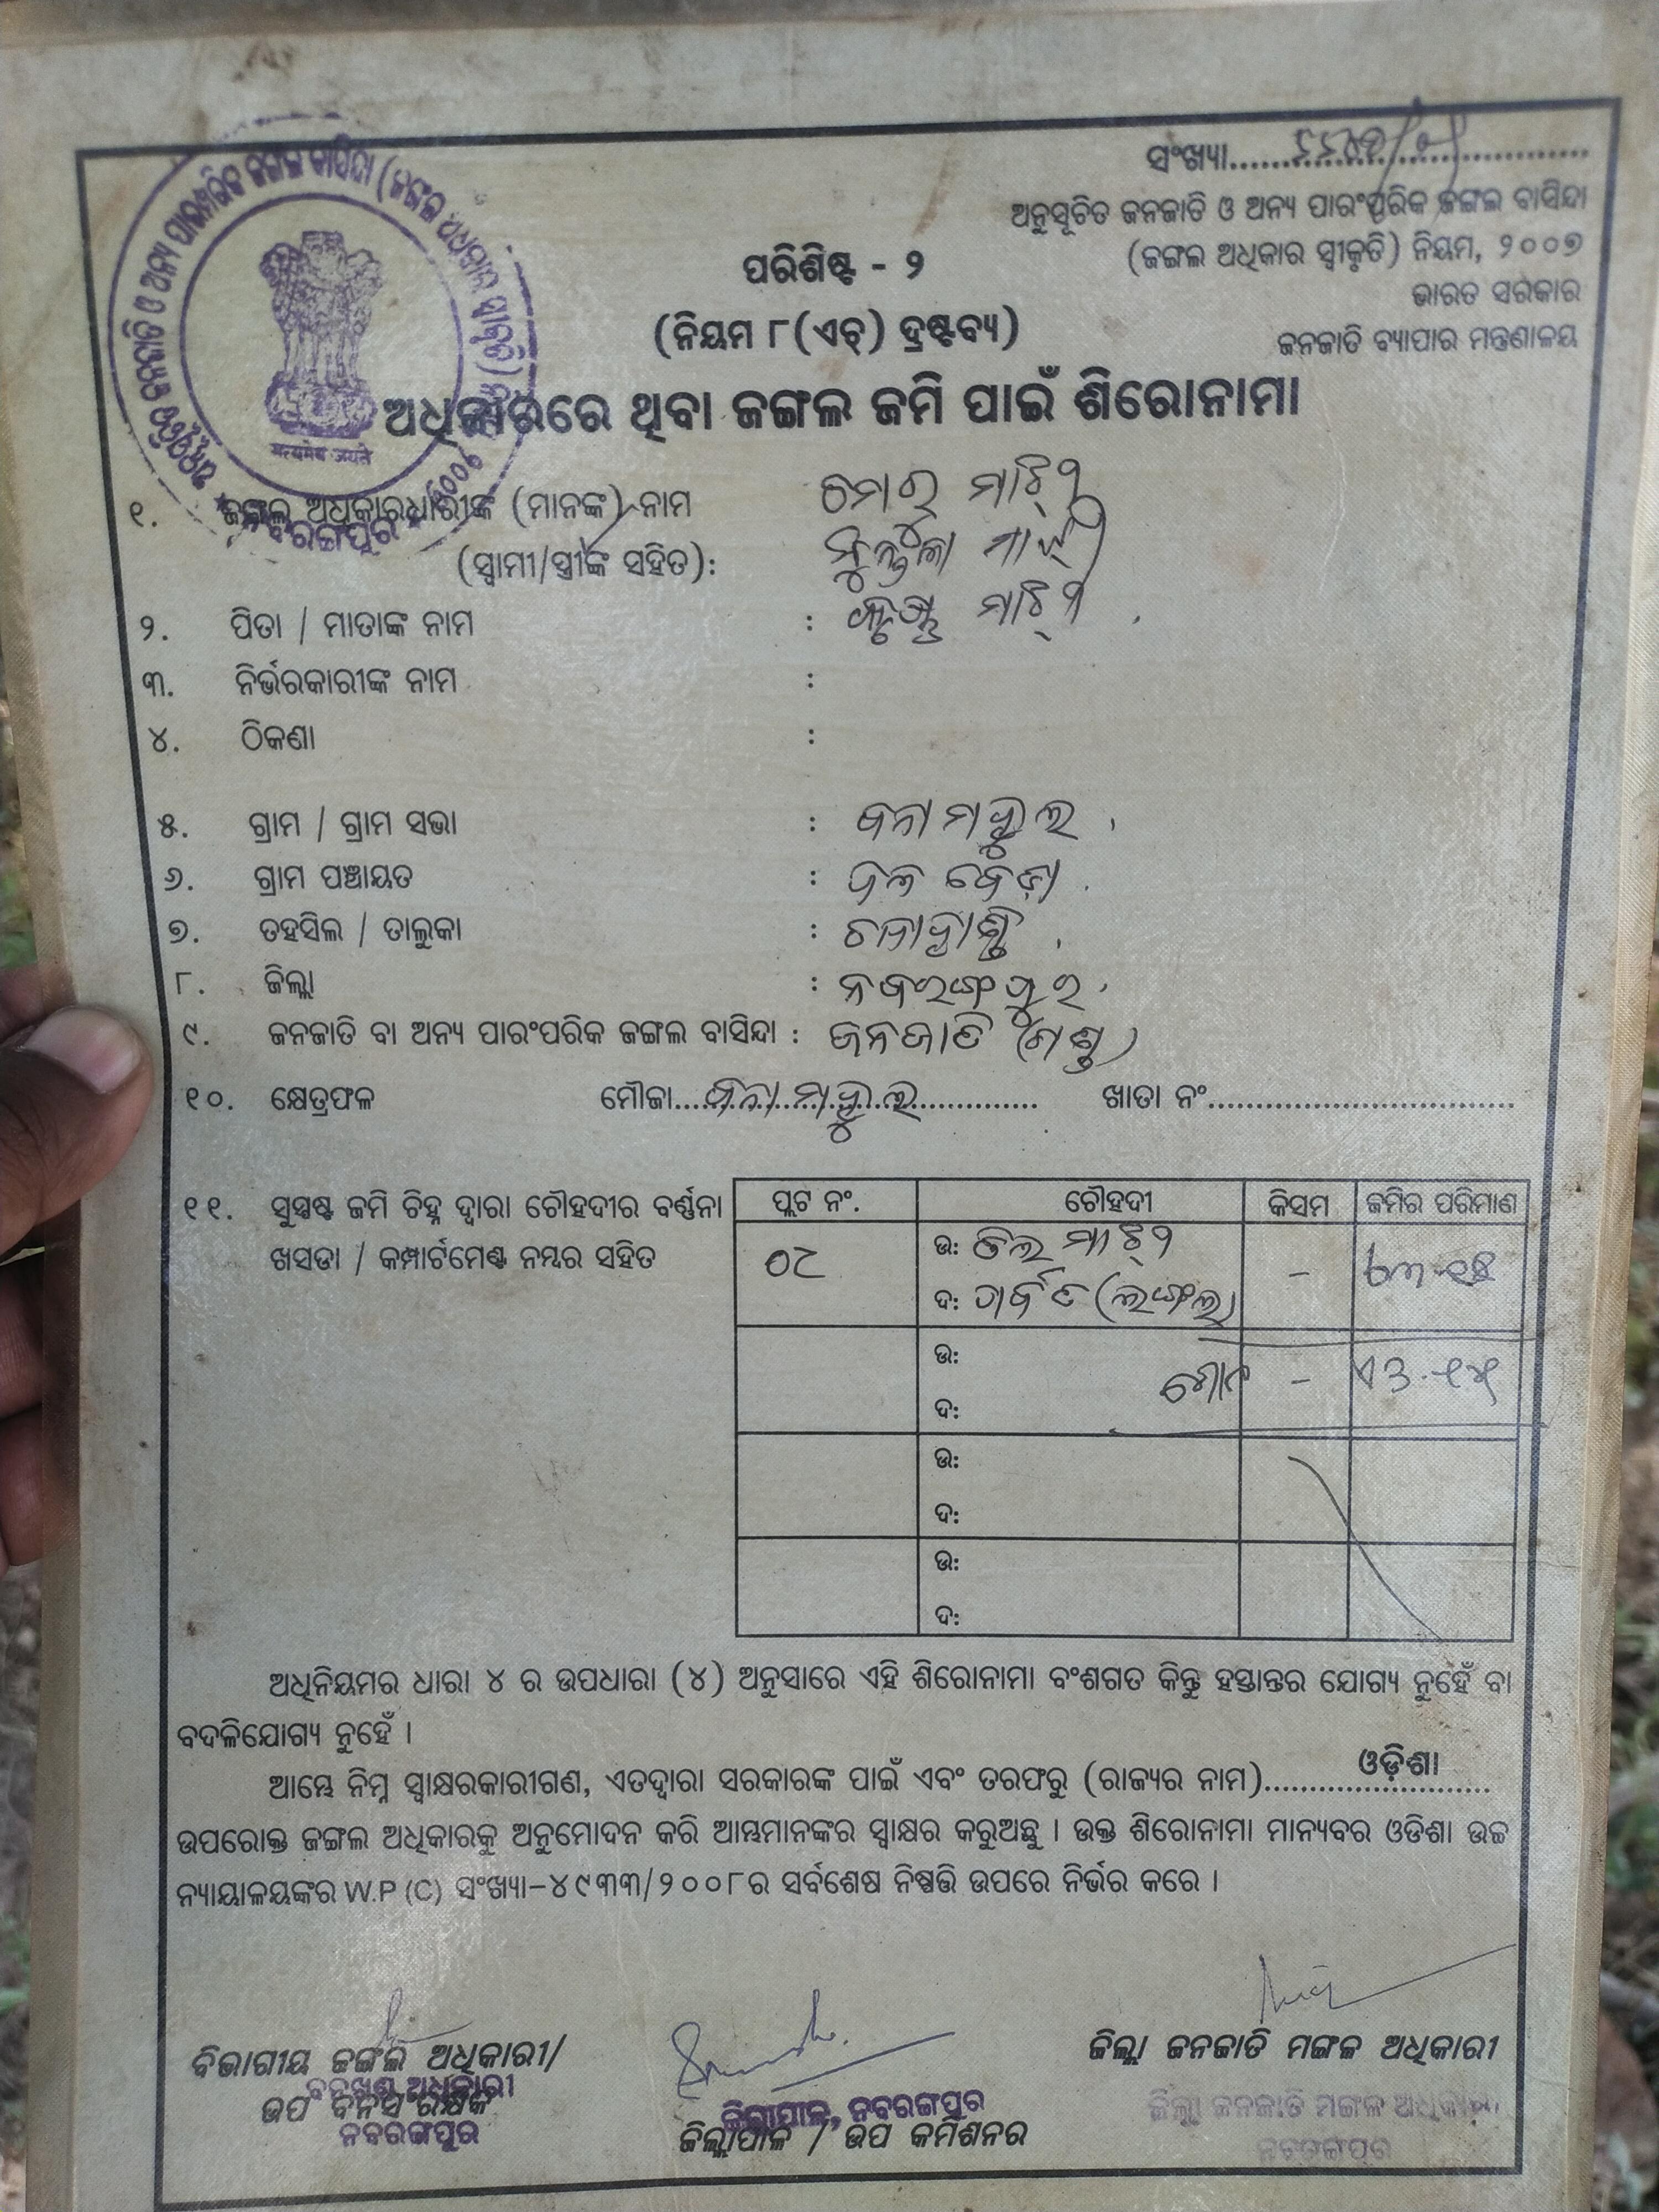 ସଂଖ୍ୟା
ଅନୁସୂଚିତ ଜନଜାତି ଓ ଅନ୍ୟ ପାରଂପରିକ ଜଙ୍ଗଲ ବାସିନ୍ଦା
(ଜଙ୍ଗଲ ଅଧିକାର ସ୍ୱୀକୃତି) ନିୟମ, ୨୦୦୭
ଭାରତ ସରକାର
ଜନଜାତି ବ୍ୟାପାର ମନ୍ତ୍ରଣାଳୟ
ପରିଶିଷ୍ଟ - ୨
(ନିୟମ ୮(ଏଚ୍) ଦ୍ରଷ୍ଟବ୍ୟ)
ଅଧିକାରରେ ଥିବା ଜଙ୍ଗଲ ଜମି ପାଇଁ ଶିରୋନାମା
सत्यमेव जयते
୧. ଜଙ୍ଗଲ ଅଧିକାରଧାରୀଙ୍କ (ମାନଙ୍କ) ନାମ
(ସ୍ୱାମୀ/ସ୍ତ୍ରୀଙ୍କ ସହିତ):
୨. ପିତା / ମାତାଙ୍କ ନାମ :
୩. ନିର୍ଭରକାରୀଙ୍କ ନାମ :
୪. ଠିକଣା :
୫. ଗ୍ରାମ / ଗ୍ରାମ ସଭା : ବନାମହୁଲ
୬. ଗ୍ରାମ ପଞ୍ଚାୟତ :
୭. ତହସିଲ / ତାଲୁକା : ଚନ୍ଦାହାଣ୍ଡି
୮. ଜିଲ୍ଲା : ନବରଙ୍ଗପୁର
୯. ଜନଜାତି ବା ଅନ୍ୟ ପାରଂପରିକ ଜଙ୍ଗଲ ବାସିନ୍ଦା : ଜନଜାତି (ଗଣ୍ଡ)
୧୦. କ୍ଷେତ୍ରଫଳ ମୌଜା ବନାମହୁଲ ଖାତା ନଂ
୧୧. ସୁସ୍ପଷ୍ଟ ଜମି ଚିହ୍ନ ଦ୍ୱାରା ଚୌହଦୀର ବର୍ଣ୍ଣନା
ଖସଡା / କମ୍ପାର୍ଟମେଣ୍ଟ ନମ୍ବର ସହିତ
ପ୍ଲଟ ନଂ. ଚୌହଦୀ କିସମ ଜମିର ପରିମାଣ
୦୮ ଉ: –
ଦ:
ଉ: –
ଦ:
ଉ:
ଦ:
ଉ:
ଦ:
ଅଧିନିୟମର ଧାରା ୪ ର ଉପଧାରା (୪) ଅନୁସାରେ ଏହି ଶିରୋନାମା ବଂଶଗତ କିନ୍ତୁ ହସ୍ତାନ୍ତର ଯୋଗ୍ୟ ନୁହେଁ ବା
ବଦଳିଯୋଗ୍ୟ ନୁହେଁ ।
ଆମ୍ଭେ ନିମ୍ନ ସ୍ୱାକ୍ଷରକାରୀଗଣ, ଏତଦ୍ୱାରା ସରକାରଙ୍କ ପାଇଁ ଏବଂ ତରଫରୁ (ରାଜ୍ୟର ନାମ) ଓଡ଼ିଶା
ଉପରୋକ୍ତ ଜଙ୍ଗଲ ଅଧିକାରକୁ ଅନୁମୋଦନ କରି ଆମ୍ଭମାନଙ୍କର ସ୍ୱାକ୍ଷର କରୁଅଛୁ । ଉକ୍ତ ଶିରୋନାମା ମାନ୍ୟବର ଓଡିଶା ଉଚ୍ଚ
ନ୍ୟାୟାଳୟଙ୍କର W.P (C) ସଂଖ୍ୟା–୪୯୩୩/୨୦୦୮ର ସର୍ବଶେଷ ନିଷ୍ପତ୍ତି ଉପରେ ନିର୍ଭର କରେ ।
ବିଭାଗୀୟ ଜଙ୍ଗଲ ଅଧିକାରୀ/
ବନଖଣ୍ଡ ଅଧିକାରୀ
ଉପ ବନସଂରକ୍ଷକ
ନବରଙ୍ଗପୁର
ଜିଲ୍ଲାପାଳ, ନବରଙ୍ଗପୁର
ଜିଲ୍ଲାପାଳ / ଉପ କମିଶନର
ଜିଲ୍ଲା ଜନଜାତି ମଙ୍ଗଳ ଅଧିକାରୀ
ଜିଲ୍ଲା ଜନଜାତି ମଙ୍ଗଳ ଅଧିକାରୀ
ନବରଙ୍ଗପୁର